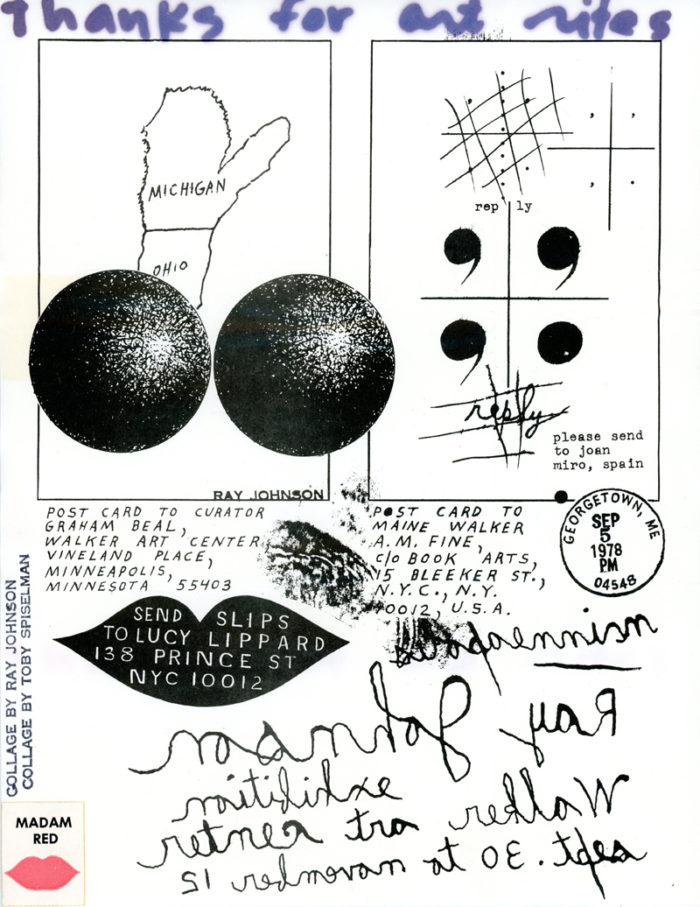 Thanks for art rites
MICHIGAN
OHIO
RAY JOHNSON
rep ly
reply
please send
to joan
miro, spain
POST CARD TO CURATOR
GRAHAM BEAL,
WALKER ART CENTER
VINELAND PLACE,
MINNEAPOLIS,
MINNESOTA 55403
POST CARD TO
MAINE WALKER
A.M. FINE,
c/o BOOK ARTS,
15 BLEEKER ST.,
N.Y.C., N.Y.
10012, U.S.A.
GEORGETOWN, ME
SEP
5
1978
PM
04548
SEND SLIPS
TO LUCY LIPPARD
138 PRINCE ST
NYC 10012
COLLAGE BY RAY JOHNSON
COLLAGE BY TOBY SPISELMAN
minneapolis
Ray Johnson
exhibition
Walker art center
sept. 30 to november 12
MADAM
RED